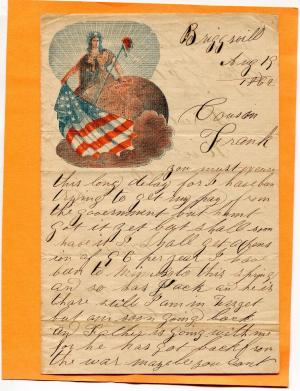 Briggsvill
Aug 19
1862
Couson
Frank
you must excuse
this long delay for I have ben
trying to get my pay from
the government but haint
got it yet but shall soon
have it I shall get a pens
ion of 96 per year I have
ben to Minnesota this spring
and so has Jack and he is
thare still I am in
but am soon going back
and Father is going with me
for he has got back from
the war maybe you cant